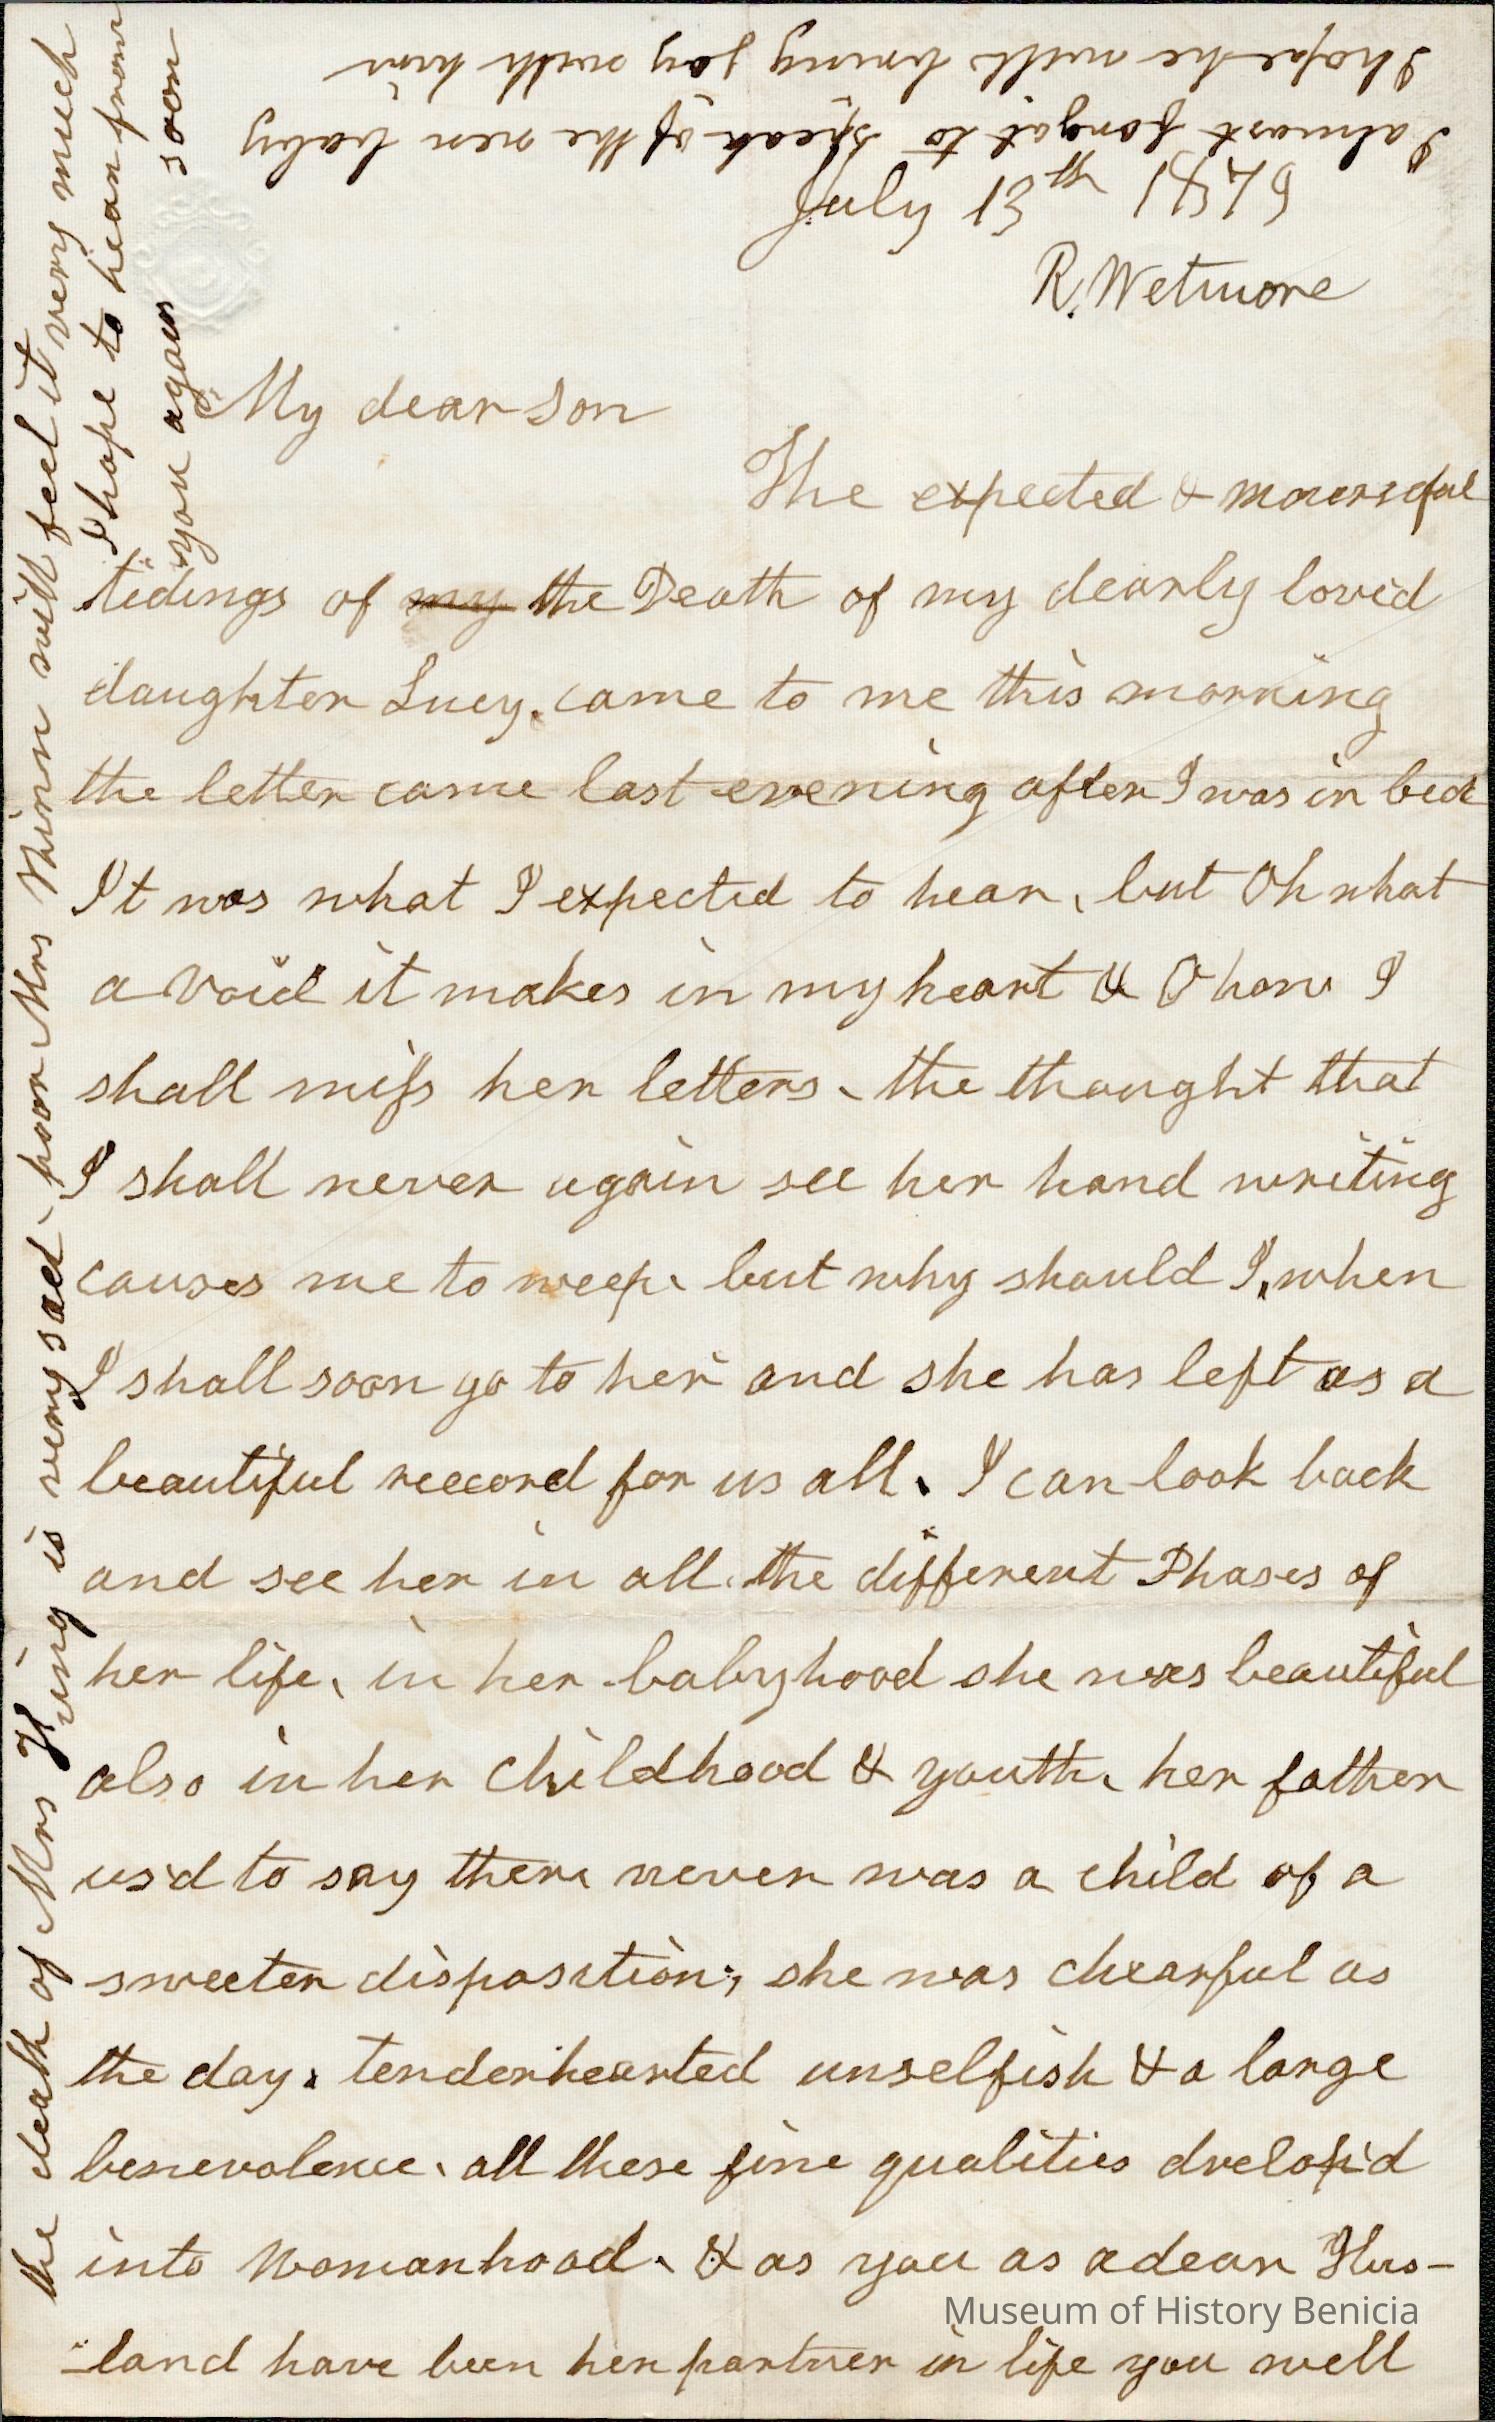 I almost forgot to speak of the new baby
I hope he will bring joy with him
July 13th 1879
R. Wetmore
My dear son
The expected & mournful
tidings of my the Death of my dearly lov'd
daughter Lucy, came to me this morning
the letter came last evening after I was in bed
It was what I expected to hear, but Oh what
a void it makes in my heart & O how I
shall miss her letters, the thought that
I shall never again see her hand writing
causes me to weep, but why should I, when
I shall soon go to her and she has left as a
beautiful reccord for us all. I can look back
and see her in all the different Phases of
her life, in her babyhood she was beautiful
also in her childhood & youth, her father
us'd to say there never was a child of a
sweeter disposition; she was chearful as
the day, tenderhearted unselfish & a large
benevolence, all these fine qualities dvelop'd
into Womanhood, & as you as a dear Hus-
-band have been her partner in life you well
the death of Mrs King is very sad poor Mrs will feel it very much
I hope to hear from
you again soon
Museum of History Benicia